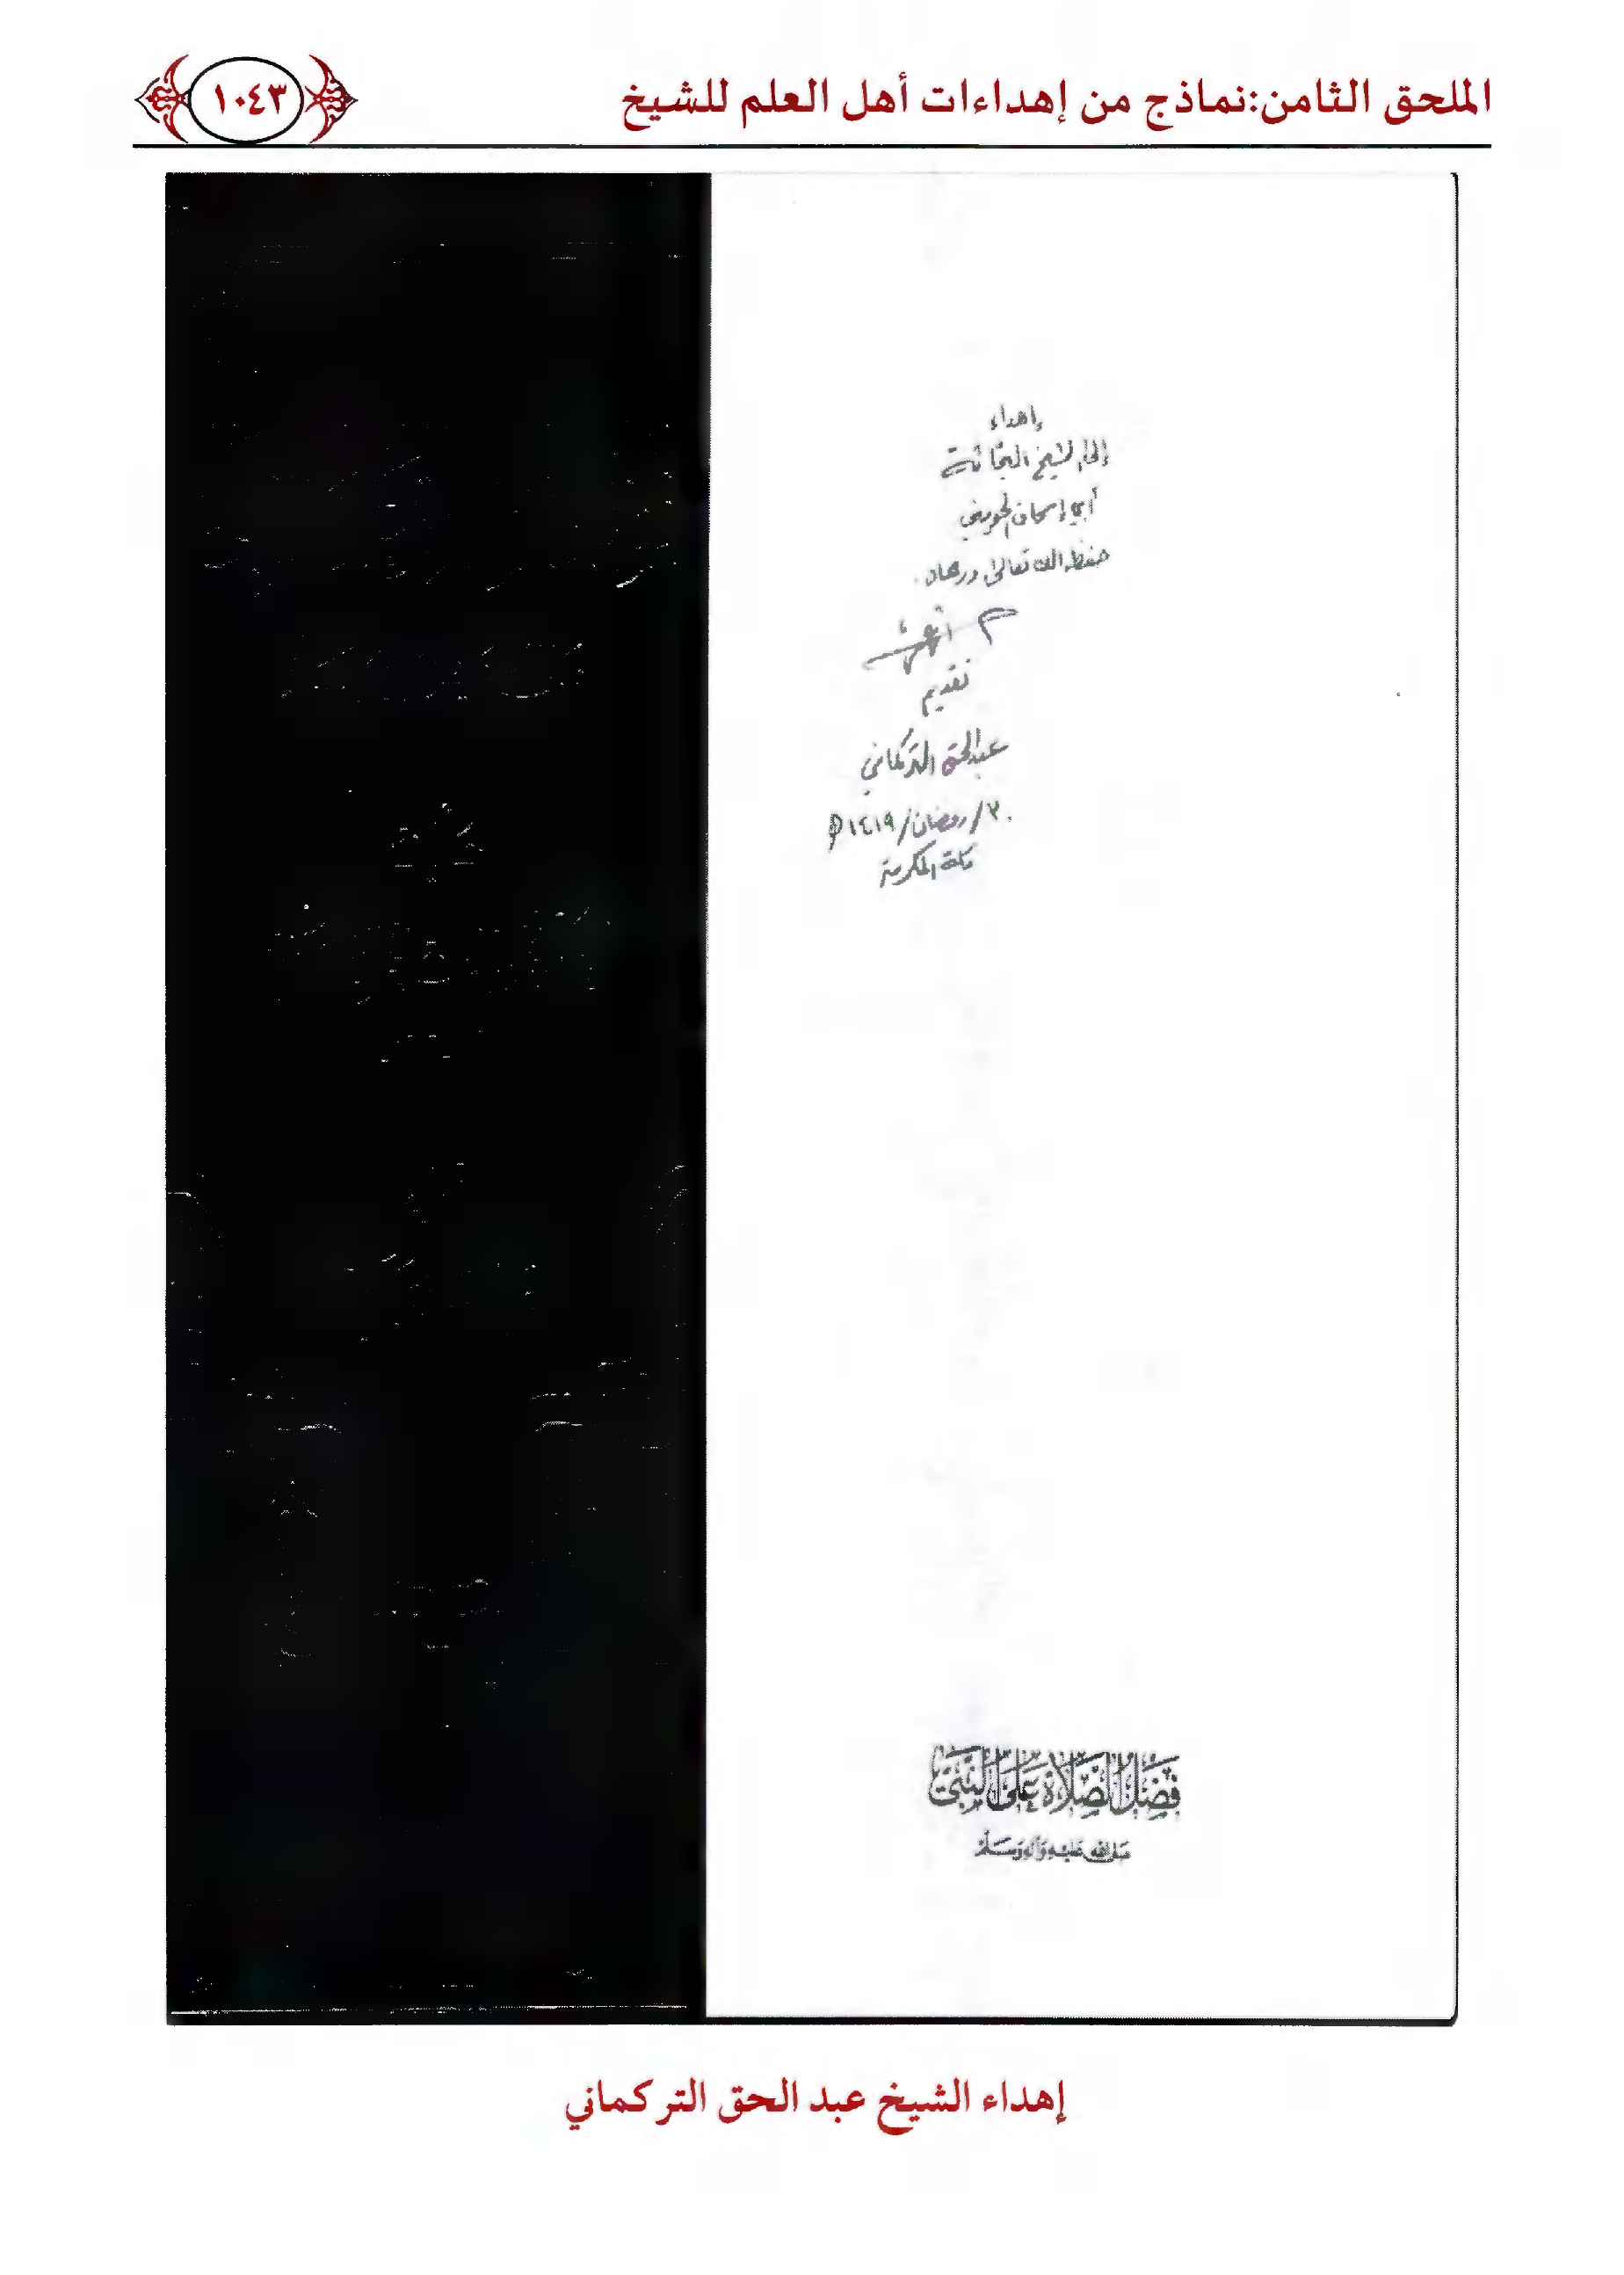 الملحق الثامن:نماذج من إهداءات أهل العلم للشيخ
١٠٤٣
إهداء
إلى الشيخ البحّاثة
أبي إسحاق الحويني
حفظه الله تعالى ورعاه.
تقديم
عبدالحق التركماني
٢٠/رمضان/١٤١٩ه
مكة المكرمة
فَضْلُ الصَّلَاةِ عَلَى النَّبِيِّ
صَلَّى اللهُ عَلَيْهِ وَآلِهِ وَسَلَّمَ
إهداء الشيخ عبد الحق التركماني